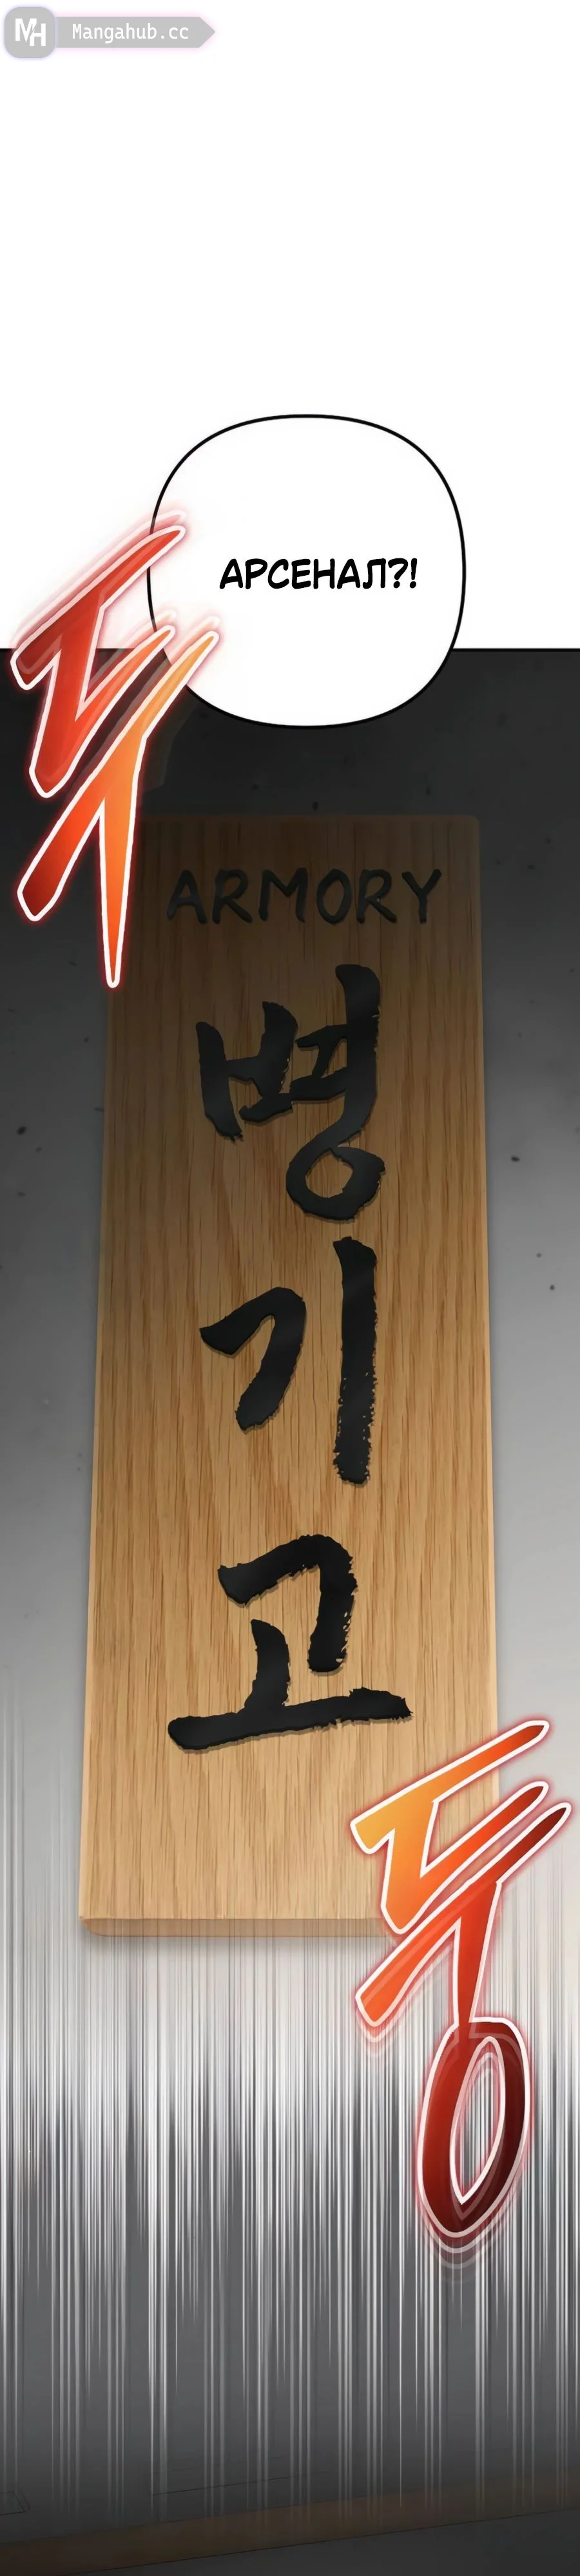 MH Mangahub.cc
АРСЕНАЛ?!
두
ARMORY
병
기
고
둥